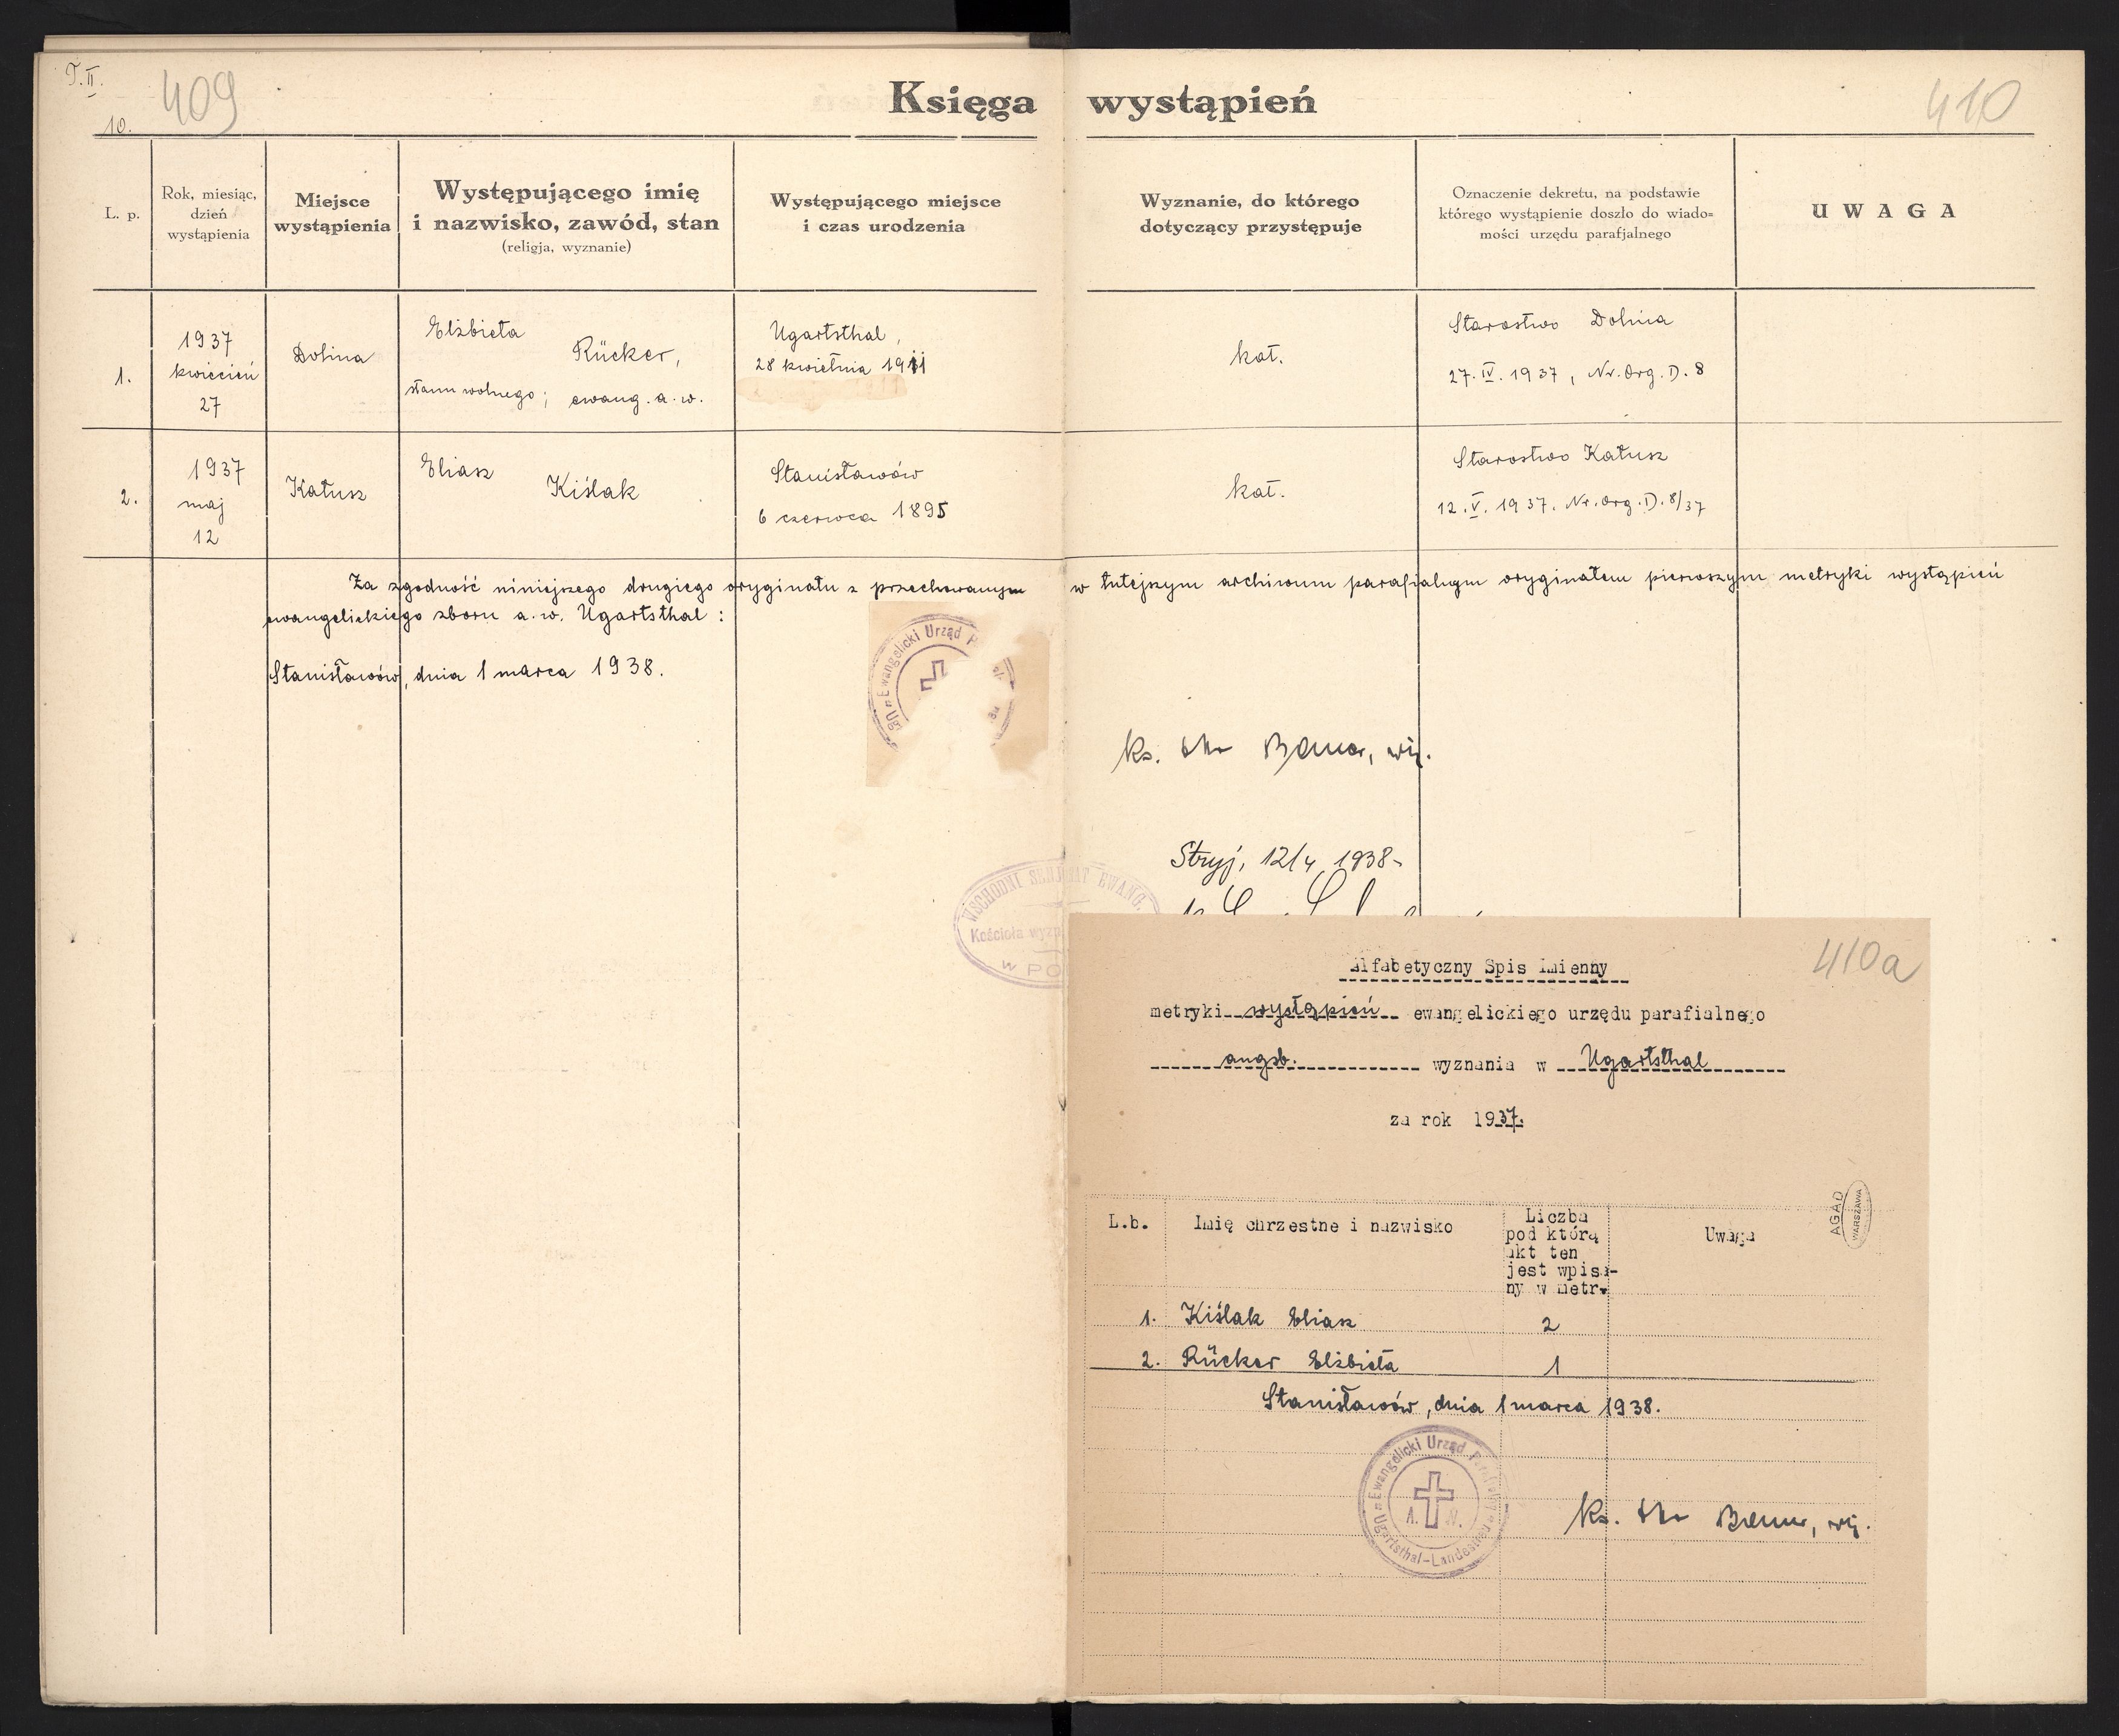 T. II.
10.
409
Księga wystąpień
410
L. p.
Rok, miesiąc,
dzień
wystąpienia
Miejsce
wystąpienia
Występującego imię
i nazwisko, zawód, stan
(religja, wyznanie)
Występującego miejsce
i czas urodzenia
Wyznanie, do którego
dotyczący przystępuje
Oznaczenie dekretu, na podstawie
którego wystąpienie doszło do wiado=
mości urzędu parafjalnego
UWAGA
1.
1937
kwiecień
27
Dolina
Elżbieta
Rücker,
stanu wolnego; ewang. a. w.
Ugartsthal,
28 kwietnia 1911
kat.
Starostwo Dolina
27. IV. 1937, Nr. Org. D. 8
2.
1937
maj
12
Kałusz
Eliasz
Kiślak
Stanisławów
6 czerwca 1895
kat.
Starostwo Kałusz
12. V. 1937. Nr. Org. D. 8/37
Za zgodność niniejszego drugiego oryginału z przechowanym w tutejszym archiwum parafialnym oryginałem pierwszym metryki wystąpień
ewangelickiego zboru a. w. Ugartsthal:
Stanisławów, dnia 1 marca 1938.
Ewangelicki Urząd
Ks.
Stryj, 12/4 1938
WSCHODNI SENJORAT EWANG.
Kościoła wyzn
w PO
410a
Alfabetyczny Spis Imienny
metryki wystąpień ewangelickiego urzędu parafialnego
augsb. wyznania w Ugartsthal
za rok 1937.
AGAD
WARSZAWA
L.b.
Imię chrzestne i nazwisko
Liczba
pod którą
akt ten
jest wpisa-
ny w metr.
Uwaga
1. Kiślak Eliasz 2
2. Rücker Elżbieta 1
Stanisławów, dnia 1 marca 1938.
Ewangelicki Urząd Parafialny
A. W.
Ugartsthal-Landestreu
Ks.